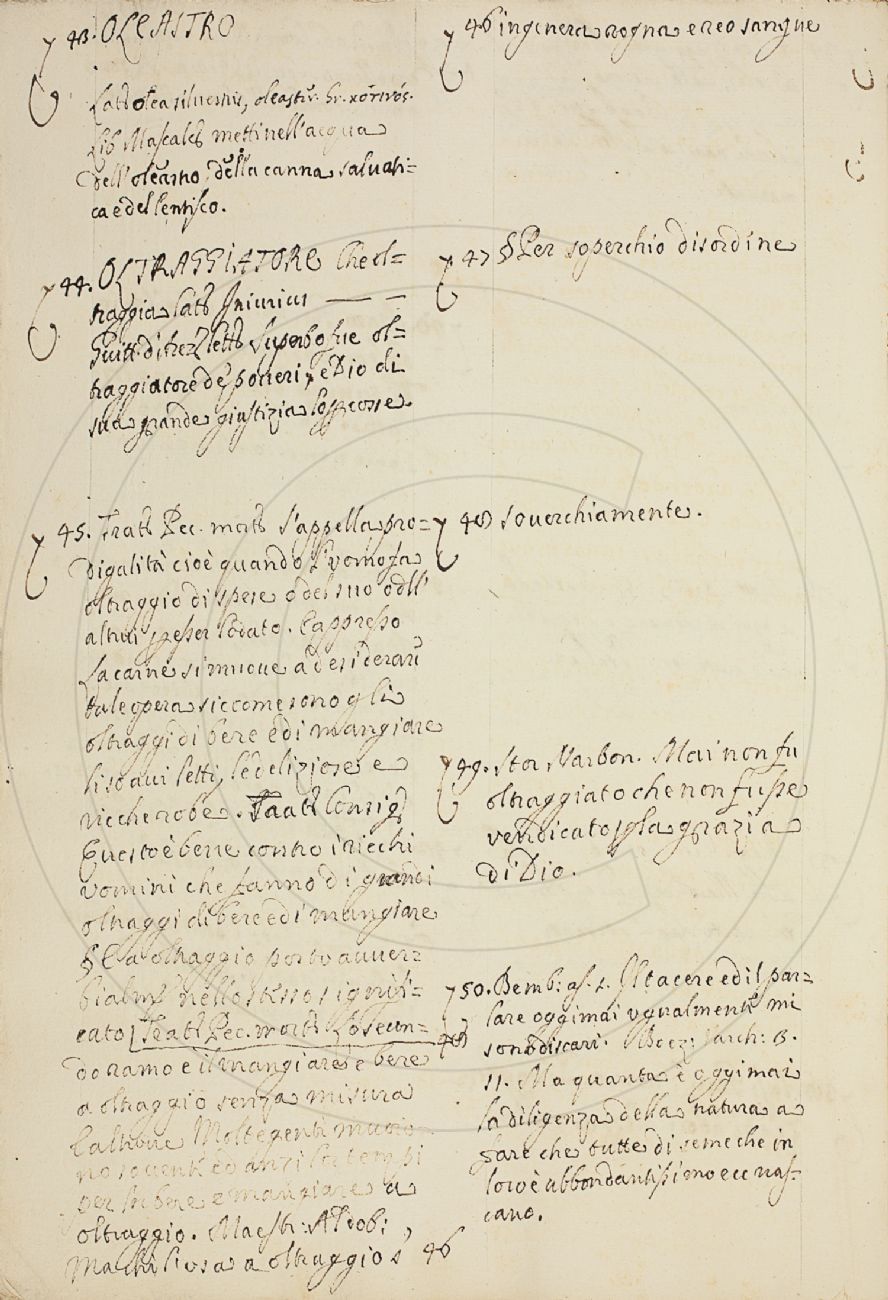 43. OLEASTRO
Latt olea siluestris, oleastr. Gr. κότινός.
Lib Mascalc metti nell'acqua
dell'oleastro, della canna saluati=
ca e del lentisco.
44. OLTRAGGIATORE Che ol=
traggia Latt Iniurius
Guitt. di trez lett Superbo fue ol=
traggiatore de poueri, e Dio di
sua grande giustizia lo percosse.
45. Tratt Pec. mort s'appella pro=
digalità cioè quando l'uomo fa
oltraggio di spese o del suo o dell'
altrui per esser lodato. E appresso
La carne si muoue a desiderar
tale opera siccome sono gli
oltraggi di bere e di mangiare
li soaui letti, le deliziose e
ricche robe. Tratt Consigl
Questo è bene contro i ricchi
uomini che fanno di grandi
oltraggi di bere e di mangiare
§ E a oltraggio posto auuer=
bialm nello stesso signifi=
cato Tratt Pec. mort Lo secun=
do ramo e il mangiare e bere
a oltraggio senza misura
E altroue Molte genti muoio=
no souente ed anzi lor tempi
per lor bere e mangiare a
oltraggio. Maestr: Aldob:
Ma chi li usa a oltraggio s' 46
46 ingenera rogna e reo sangue
47 § Per soperchio disordine
48 souerchiamente.
49. Stor Narbon. Mai non fu
oltraggiato che non fusse
vendicato p la grazia
di Dio.
50. Bemb: as. 1. Il tacere ed il par=
lare oggimai ugualmente mi
sono discari. Boez: Varch: 3.
11. Ma quanta è oggimai
la diligenza della natura a
fare che tutte di seme che in
loro è abbondantissimo ecc nas=
cano.